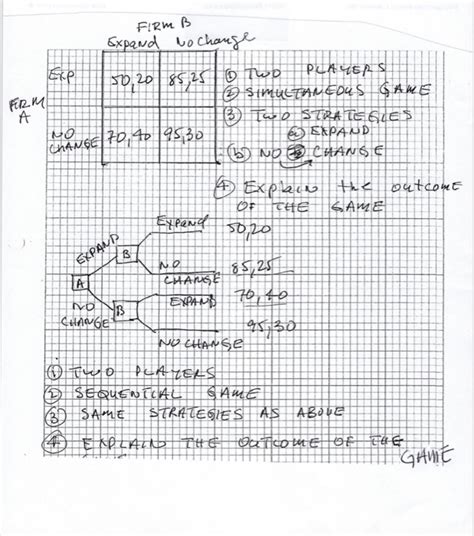 FIRM B
Expand No Change
EXP 50,20 85,25
FIRM A
NO CHANGE 70,40 95,30
① TWO PLAYERS
② SIMULTANEOUS GAME
③ TWO STRATEGIES
ⓐ EXPAND
ⓑ NO CHANGE
④ Explain the outcome
OF THE GAME
EXPAND
NO CHANGE
A
B
B
Expand 50,20
NO CHANGE 85,25
EXPAND 70,40
NO CHANGE 95,30
① TWO PLAYERS
② SEQUENTIAL GAME
③ SAME STRATEGIES AS ABOVE
④ EXPLAIN THE OUTCOME OF THE
GAME